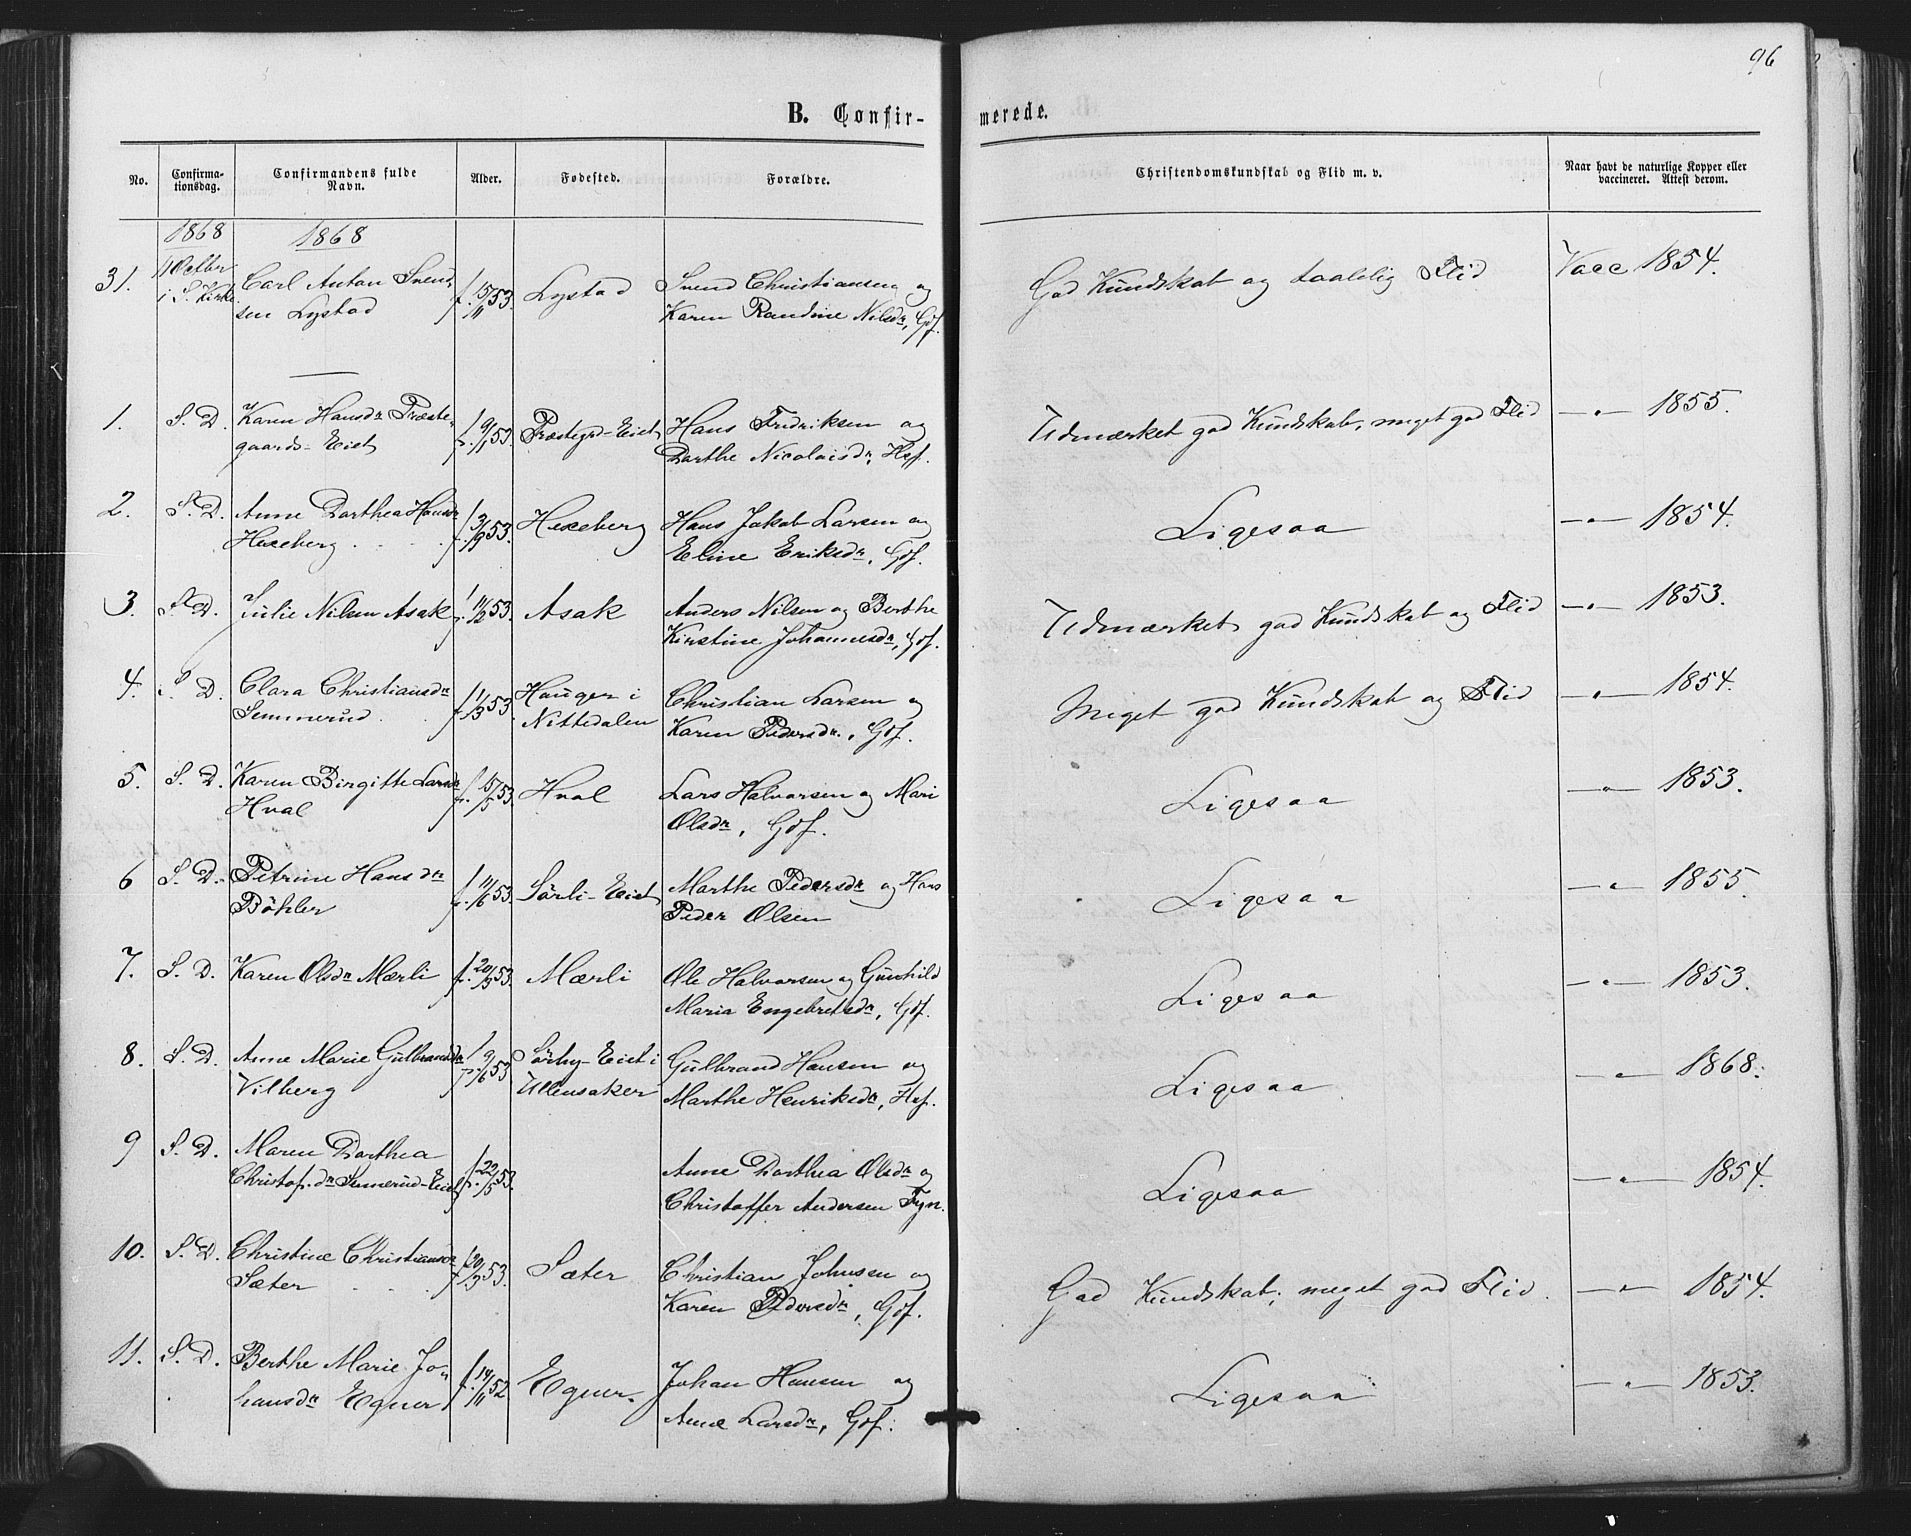 96
B. Confir-
merede.
No.
Confirma-
tionsdag.
Confirmandens fulde
Navn.
Alder.
Fødested.
Forældre.
Christendomskundskab og Flid m. v.
Naar havt de naturlige Kopper eller
vaccineret. Attest derom.
1868
1868
31.
11 Octbr
i S. Kirke
Carl Anton Svend-
sen Lystad
f. 15/11 53.
Lystad
Svend Christiansen og
Karen Randine Nilsdr, Gdf.
God Kundskab og taalelig Flid
Vacc 1854.
1.
S. D.
Karen Hansdr Præste-
gaards-Eiet
f. 9/1 53.
Præstegrd-Eiet
Hans Fredriksen og
Dorthe Nicolaisdr, Hsf.
Udmærket god Kundskab, meget god Flid
—〃— 1855.
2.
S. D.
Anne Dorthea Hansdr
Hexeberg
f. 3/9 53.
Hexeberg
Hans Jakob Larsen og
Eline Eriksdr, Gdf.
Ligesaa
—〃— 1854.
3.
S. D.
Julie Nilsen Asak
f. 11/12 53.
Asak
Anders Nilsen og Berthe
Kirstine Johannesdr, Gdf.
Udmærket god Kundskab og Flid
—〃— 1853.
4.
S. D.
Clara Christiansdr
Semmerud
f. 11/3 53.
Hauger i
Nittedalen
Christian Larsen og
Karen Pedersdr, Gdf.
Meget god Kundskab og Flid
—〃— 1854.
5.
S. D.
Karen Birgitte Larsdr
Hval
f. 15/5 53.
Hval
Lars Halvorsen og Mari
Olsdr, Gdf.
Ligesaa
—〃— 1853.
6
S. D.
Petrine Hansdr
Böhler
f. 11/6 53.
Sörli-Eiet
Marthe Pedersdr og Hans
Peder Olsen
Ligesaa
—〃— 1855.
7.
S. D.
Karen Olsdr Mærli
f. 20/5 53.
Mærli
Ole Halvorsen og Gunhild
Maria Engebretsdr, Gdf.
Ligesaa
—〃— 1853.
8.
S. D.
Anne Marie Gulbrandsdr
Vilberg
f. 9/6 53
Sörby-Eiet i
Ullensaker
Gulbrand Hansen og
Marthe Henriksdr, Hsf.
Ligesaa
—〃— 1868.
9
S. D.
Maren Dorthea
Christof.dr Semmerud-Eiet
f. 22/5 53.
Anne Dorthea Olsdr og
Christoffer Andersen Fyn.
Ligesaa
—〃— 1854.
10.
S. D.
Christine Christiansdr
Sæter
f. 20/3 53.
Sæter
Christian Johnsen og
Karen Pedersdr, Gdf.
God Kundskab; meget god Flid.
—〃— 1854.
11.
S. D.
Berthe Marie Jo-
hansdr Egner
f. 14/11 52
Egner.
Johan Hansen og
Anne Larsdr, Gdf.
Ligesaa
—〃— 1853.